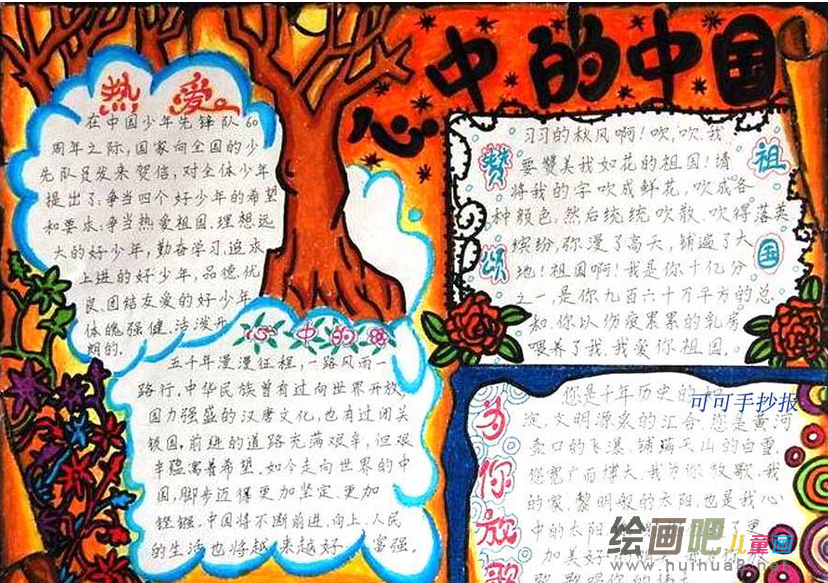 心中的中国
热爱
在中国少年先锋队60
周年之际,国家向全国的少
先队员发来贺信,对全体少年
提出了,争当四个好少年的希望
和要求,争当热爱祖国、理想远
大的好少年,勤奋学习、追求
上进的好少年,品德优
良、团结友爱的好少年
体魄强健、活泼开
朗的.
赞颂
祖国
习习的秋风啊!吹,吹.我
要赞美我如花的祖国!请
将我的字吹成鲜花,吹成各
种颜色,然后统统吹散.吹得落英
缤纷,弥漫了高天,铺遍了大
地!祖国啊!我是你十亿分
之一,是你九百六十万平方的总
和.你以伤疲累累的乳房
喂养了我.我爱你祖国.
心中的
五千年漫漫征程,一路风雨一
路行.中华民族曾有过向世界开放,
国力强盛的汉唐文化,也有过闭关
锁国,前进的道路充满艰辛,但艰
辛蕴寓着希望.如今走向世界的中
国,脚步迈得更加坚定.更加
铿锵.中国将不断前进、向上.人民
的生活也将越来越好 富强.
为你放歌
您是千年历史的
淀,文明源泉的汇合.您是黄河
壶口的飞瀑.铺满天山的白雪
您宽广而博大.我为你放歌.我
的家.黎明般的太阳.也是我心
中的太阳
加美好
可可手抄报
绘画吧儿童画
www.huihua8.net